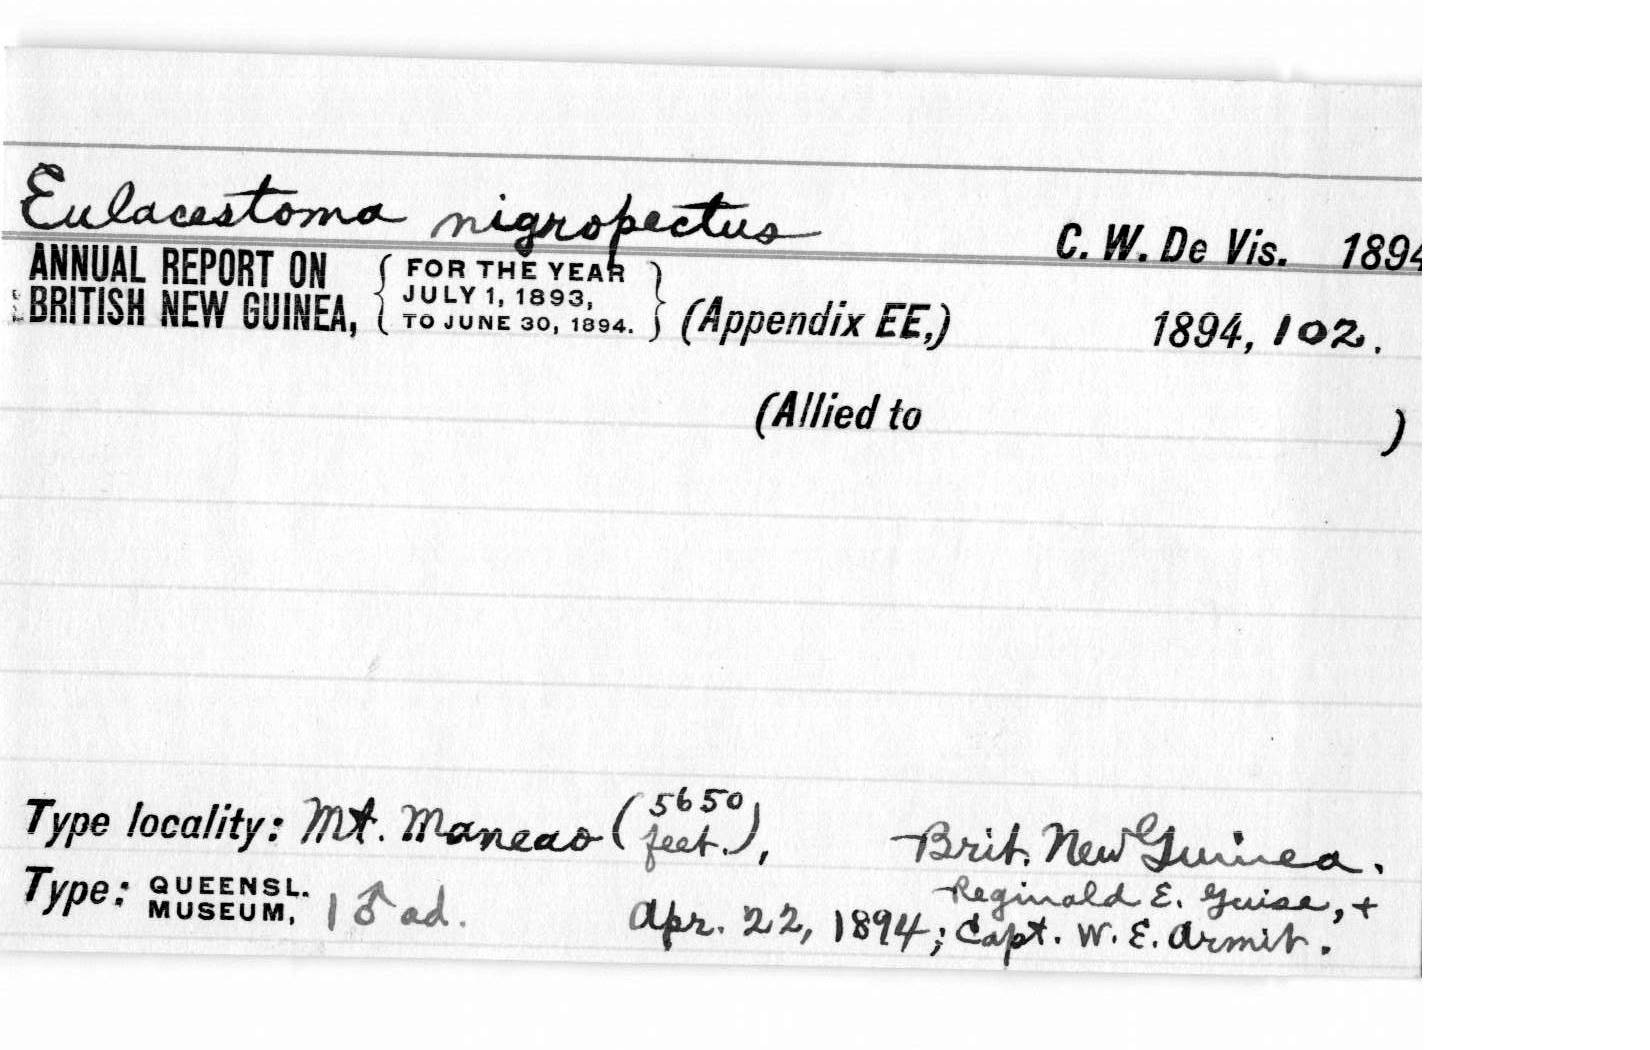 Eulacestoma nigropectus C. W. De Vis. 1894
ANNUAL REPORT ON BRITISH NEW GUINEA, { FOR THE YEAR JULY 1, 1893, TO JUNE 30, 1894. } (Appendix EE,) 1894, 102.
(Allied to )
Type locality: Mt. Maneao (5650 feet.), Brit. New Guinea.
Type: QUEENSL. MUSEUM, 1 ♂ ad. Apr. 22, 1894; Reginald E. Guise, + Capt. W. E. Armit.